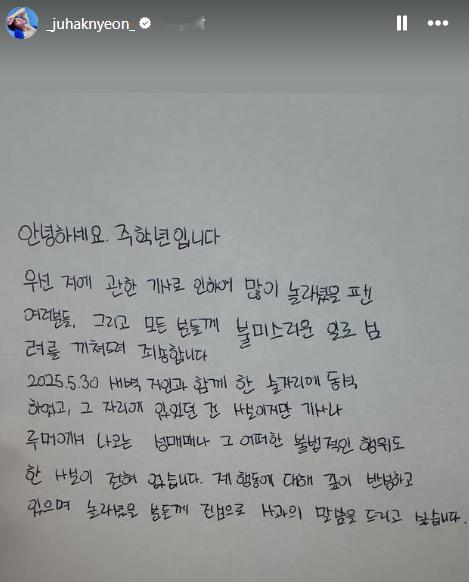 _juhaknyeon_
안녕하세요. 주학년입니다
우선 저에 관한 기사로 인하여 많이 놀라셨을 팬
여러분들, 그리고 모든 분들께 불미스러운 일로 심
려를 끼쳐드려 죄송합니다
2025.5.30 새벽 지인과 함께 한 술자리에 동석
하였고, 그 자리에 있었던 건 사실이지만 기사나
루머에서 나오는 성매매나 그 어떠한 불법적인 행위도
한 사실이 전혀 없습니다. 제 행동에 대해 깊이 반성하고
있으며 놀라셨을 분들께 진심으로 사과의 말씀을 드리고 싶습니다.